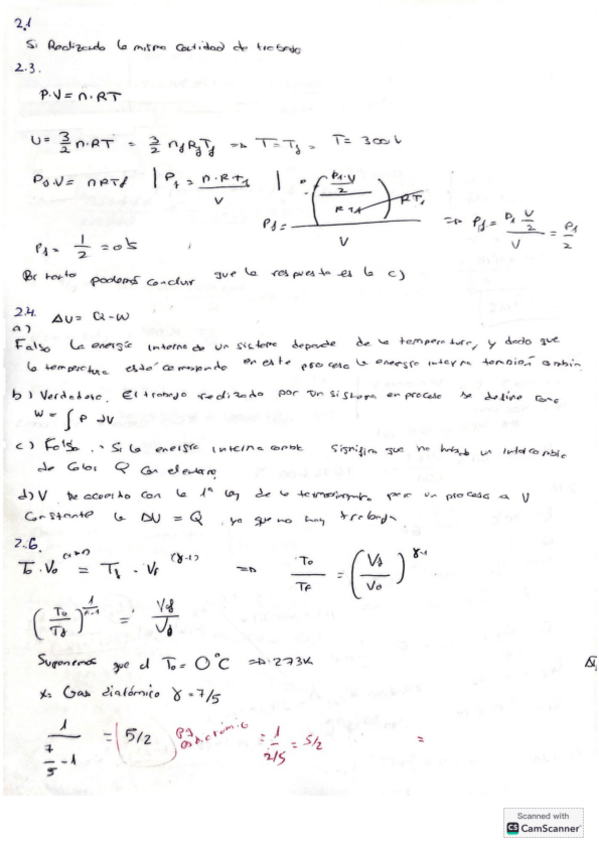 2.1
Si Realizando la misma cantidad de trabajo
2.3.
P.V = n.RT
U = 3/2 n.RT = 3/2 nf Rf Tf => T = Tf = T = 300 k
P0.V = nRTf | Pf = n.R.Tf / V | Pf = ((P1.V/2 / RTf) RTf) / V => Pf = (P1 V/2) / V = P1/2
Pf = 1/2 = 0'5
Por tanto podemos concluir que la respuesta es la c)
2.4. ΔU = Q-W
a)
Falso la energía interna de un sistema depende de la temperatura, y dado que
la temperatura está cambiando en este proceso la energía interna también cambia
b) Verdadero. El trabajo realizado por un sistema en proceso se define como
W = ∫ P dV
c) Falso. Si la energía interna cambia significa que no habrá un intercambio
de calor Q con el entorno
d) V De acuerdo con la 1ª ley de la termodinámica para un proceso a V
constante la ΔU = Q, ya que no hay trabajo
2.6.
T0.V0^(γ-1) = Tf . Vf^(γ-1) => T0/Tf = (Vf/V0)^γ-1
(T0/Tf)^1/γ-1 = Vf/V0
Suponemos que el T0 = 0°C => 273K
x = Gas diatómico γ = 7/5
1 / (7/5 - 1) = 5/2 = 1 / 2/5 = 5/2 =
Scanned with
CS CamScanner